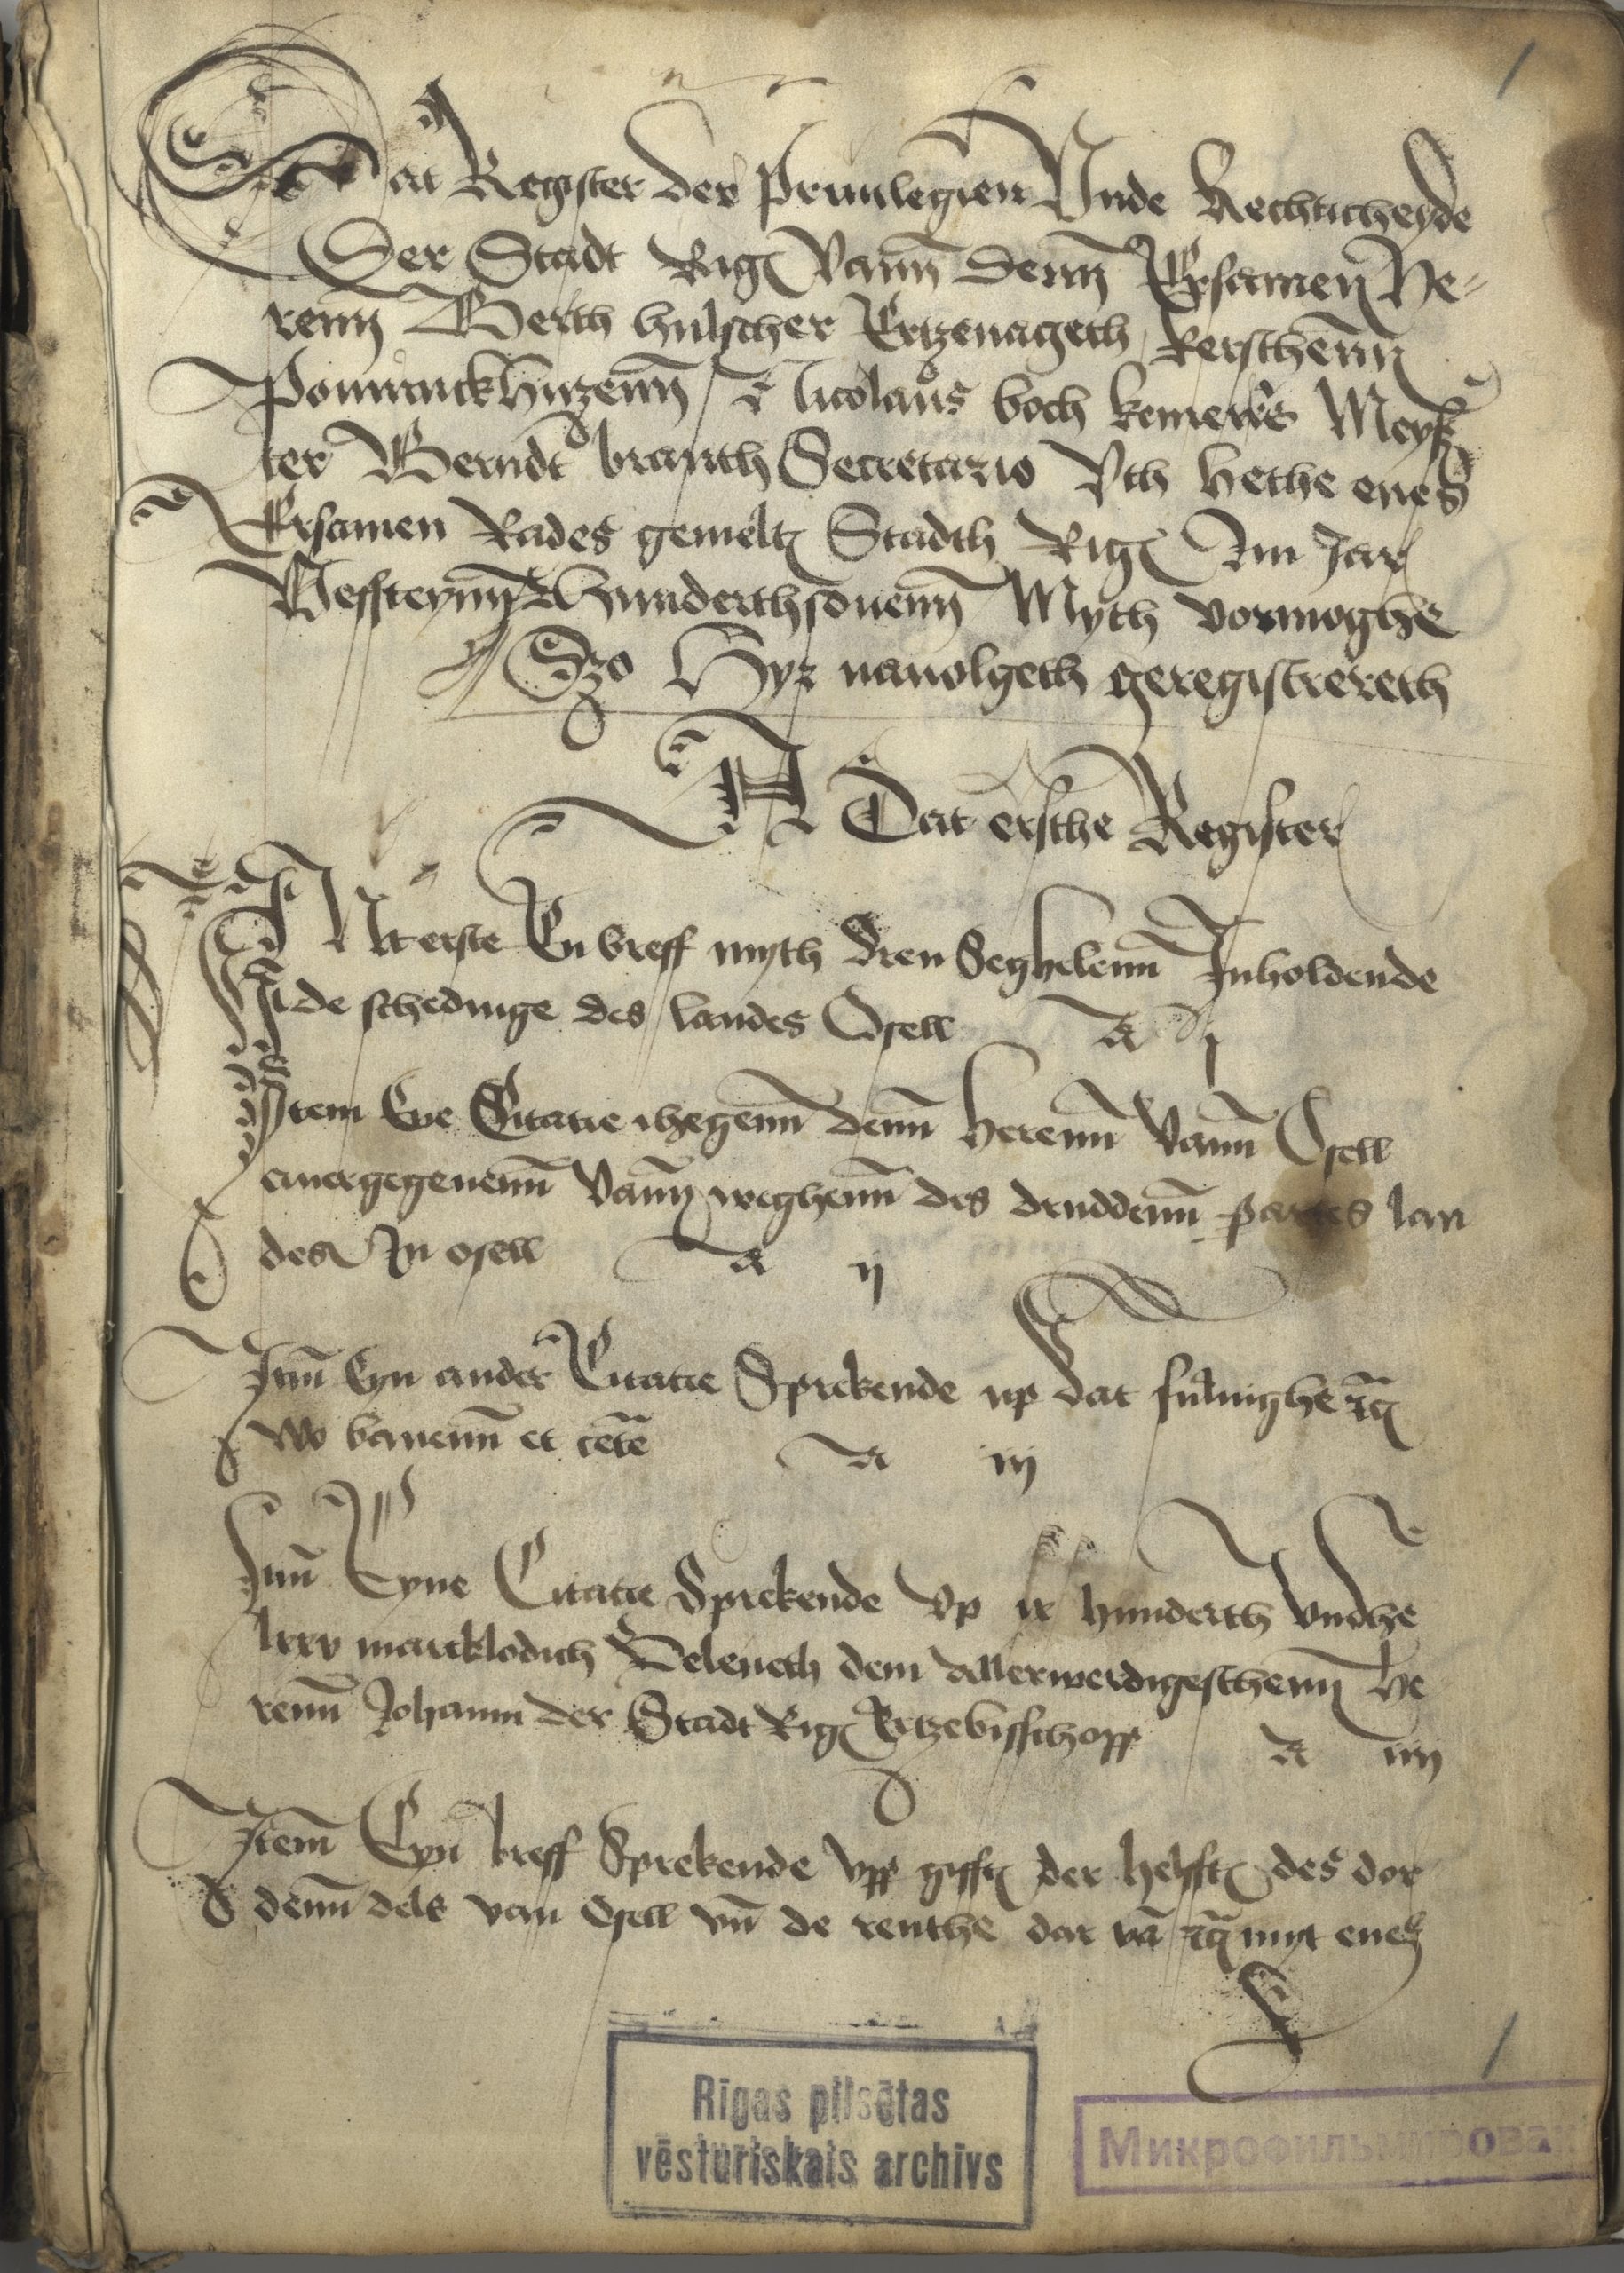 1
Dat Register der priuilegien Vnde Rechticheyde
Der Stadt Rige Vann denn Ersamen He-
renn Gerth hulscher Ertzeuageth, kersthenn
Nicolaus boch kemerers Meys
ter Berndt branth Secretario Vth hethe enes
Ersamen Rades gemelte Stadth Rige Am Jare
Veffteynn Hunderthsouenn Myth vormoghe
Szo Hyr nauolgeth geregistrereth
A Dat ersthe Register
Int erste En breff myth dren Seghelenn Inholdende
de schedinge des landes Osell A j
Item Ene Citatie thegenn denn herenn Vann Osell
auergegeuenn Vann weghenn des druddenn partes lan
des In osell A ij
Itm̄ Eyn ander Citatie Sprekende up dat suluighe
wo bauenn et cete A iij
Itm̄ Eyne Citatie Sprekende Vp ix hunderth vndhe
lxxv marcklodich Beleneth dem allerwerdigesthenn he
renn Johann der Stadt Rige Ertzebisschopp A iiij
Item̄ Eyn breff Sprekende vpp giffte der helffte des dor
denn dels van Osell vn̄ de renthe dar vā myt enes
1
Rīgas pilsētas
vēsturiskais archīvs
Микрофильмирован